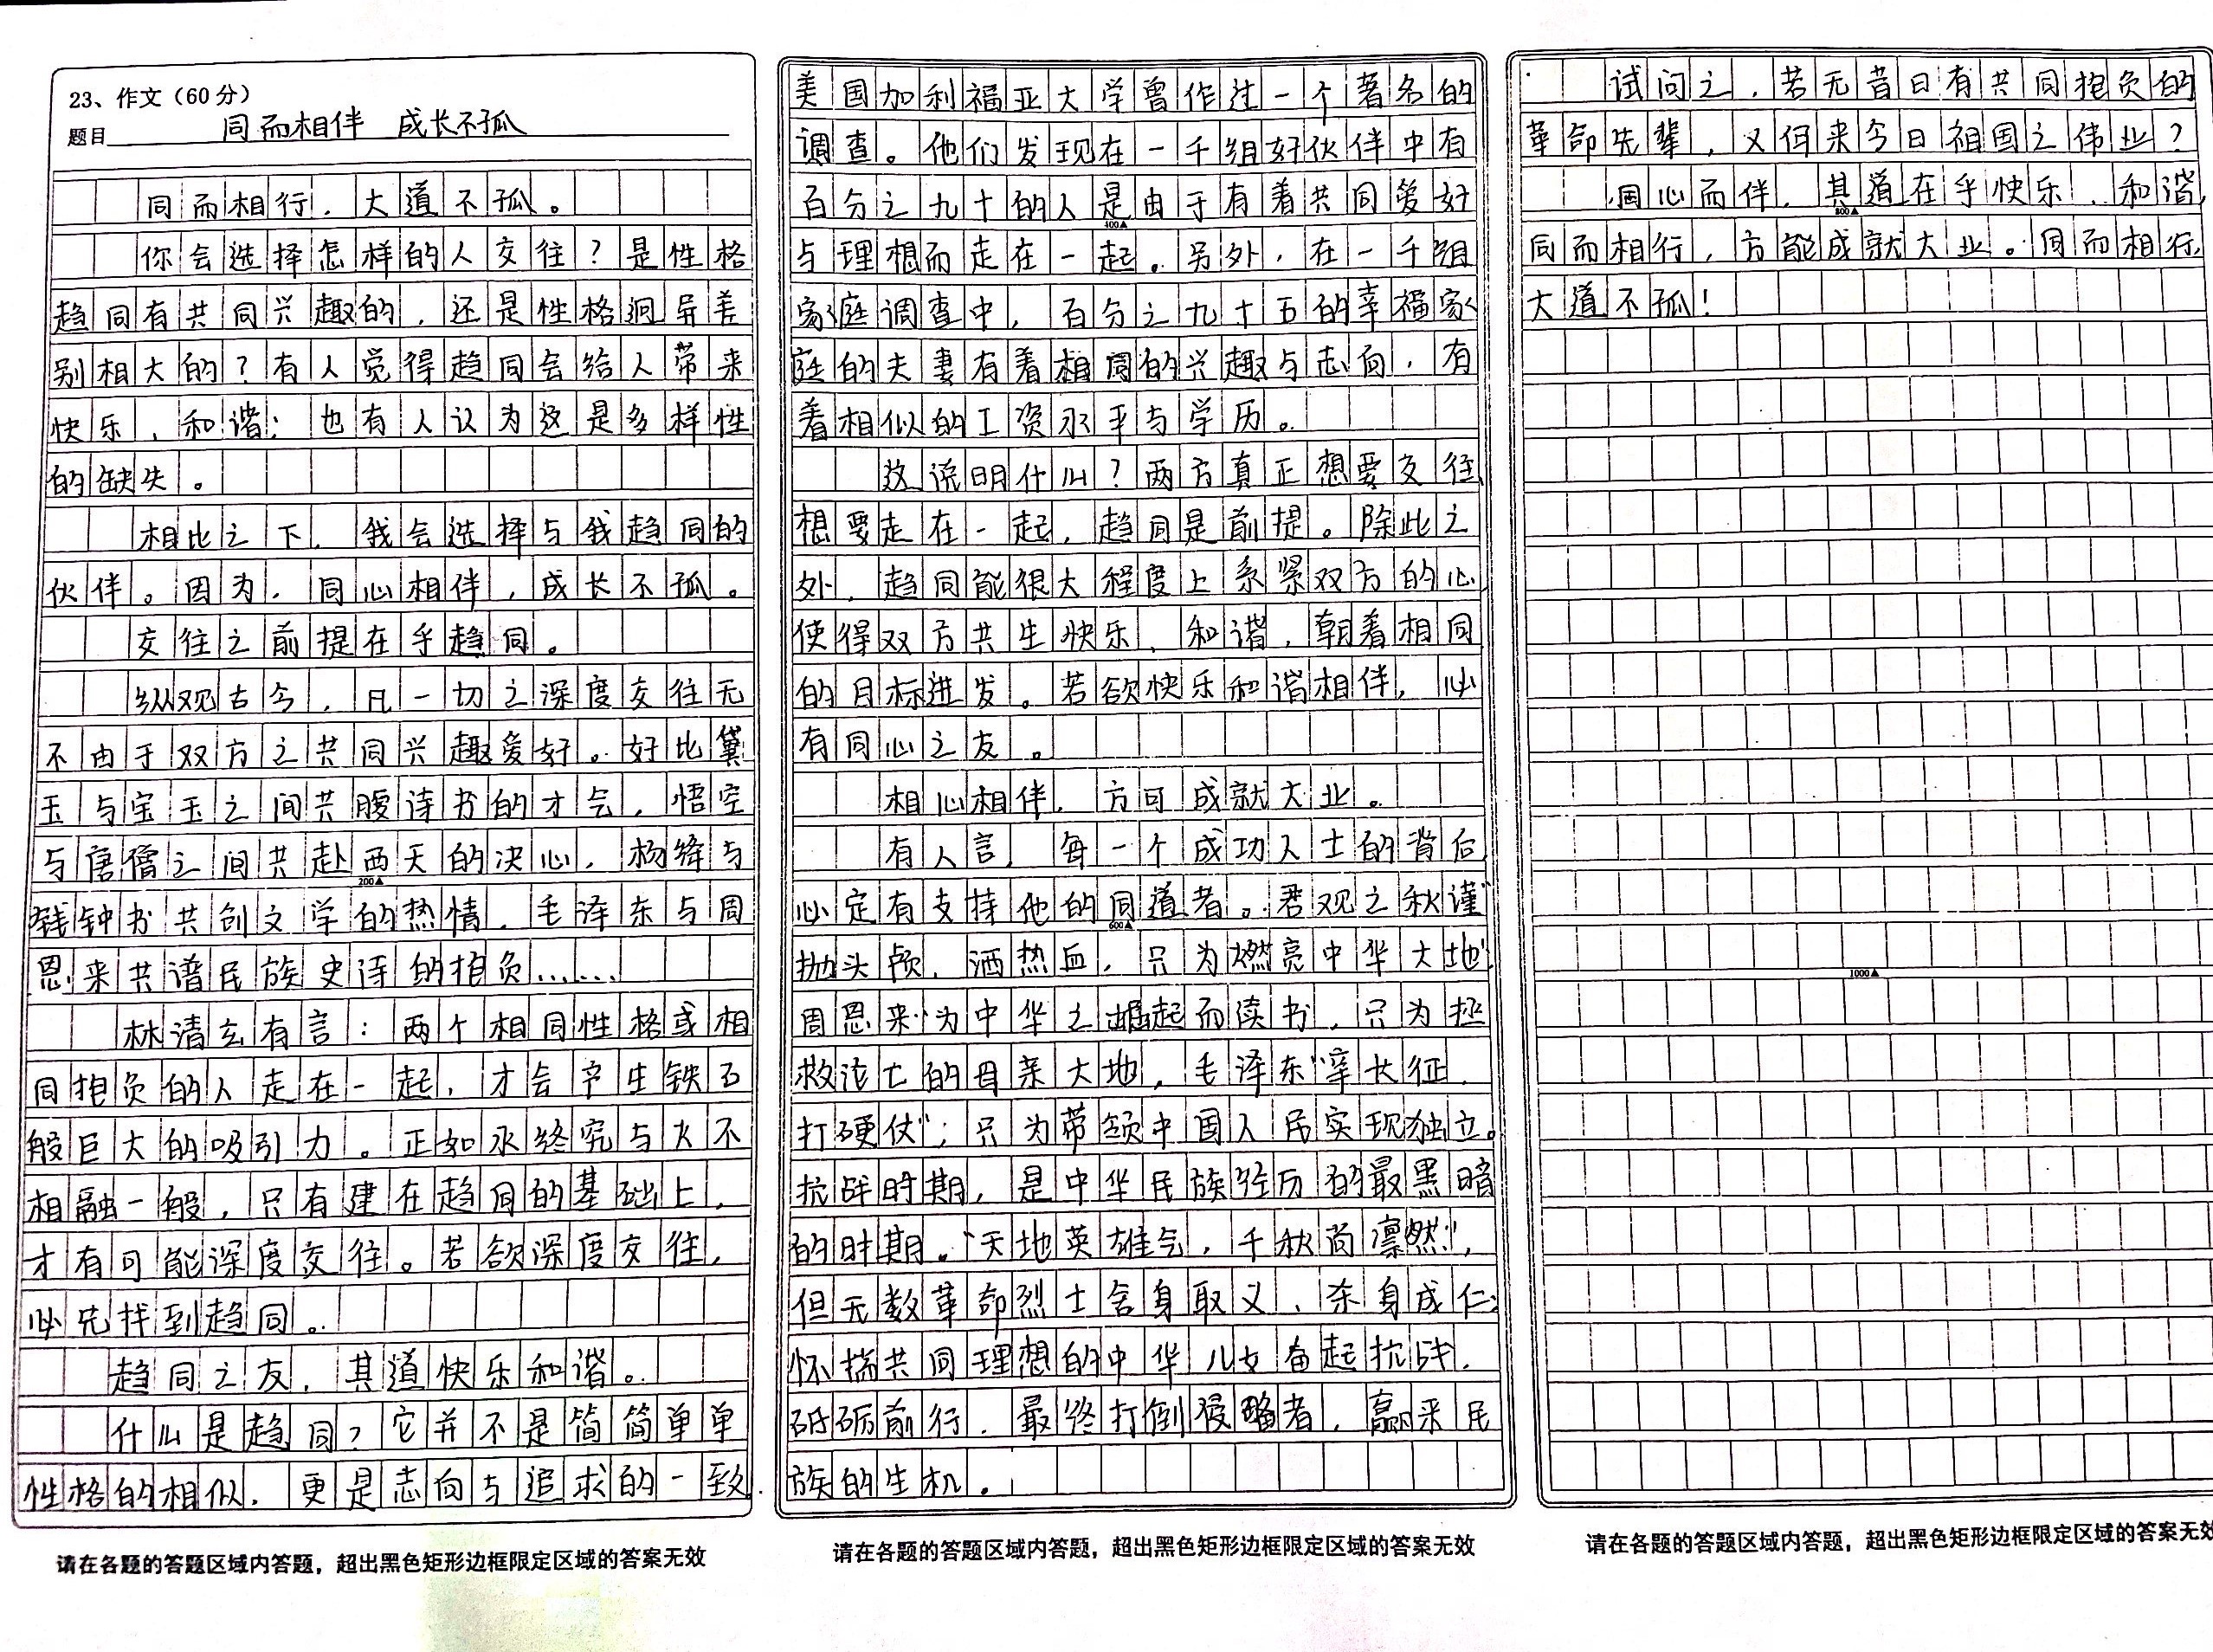 23、作文（60分）
题目 同而相伴 成长不孤
同而相行，大道不孤。
你会选择怎样的人交往？是性格
趋同有共同兴趣的，还是性格迥异差
别相大的？有人觉得趋同会给人带来
快乐、和谐；也有人认为这是多样性
的缺失。
相比之下，我会选择与我趋同的
伙伴。因为，同心相伴，成长不孤。
交往之前提在乎趋同。
纵观古今，凡一切之深度交往无
不由于双方之共同兴趣爱好。好比黛
玉与宝玉之间共腹诗书的才气，悟空
与唐僧之间共赴西天的决心，杨绛与
200▲
钱钟书共创文学的热情，毛泽东与周
恩来共谱民族史诗的抱负……
林清玄有言：两个相同性格或相
同抱负的人走在一起，才会产生铁石
般巨大的吸引力。正如水终究与火不
相融一般，只有建在趋同的基础上，
才有可能深度交往。若欲深度交往，
必先找到趋同。
趋同之友，其道快乐和谐。
什么是趋同？它并不是简简单单
性格的相似，更是志向与追求的一致。
请在各题的答题区域内答题，超出黑色矩形边框限定区域的答案无效
美国加利福亚大学曾作过一个著名的
调查。他们发现在一千组好伙伴中有
百分之九十的人是由于有着共同爱好
400▲
与理想而走在一起。另外，在一千组
家庭调查中，百分之九十五的幸福家
庭的夫妻有着相同的兴趣与志向，有
着相似的工资水平与学历。
这说明什么？两方真正想要交往，
想要走在一起，趋同是前提。除此之
外，趋同能很大程度上系紧双方的心，
使得双方共生快乐、和谐，朝着相同
的目标进发。若欲快乐和谐相伴，必
有同心之友。
相心相伴，方可成就大业。
有人言，每一个成功人士的背后，
必定有支持他的同道者。君观之秋谨“
600▲
抛头颅，洒热血，只为燃亮中华大地”
周恩来“为中华之崛起而读书，只为拯
救沦亡的母亲大地，毛泽东“率长征，
打硬仗”；只为带领中国人民实现独立。
抗战时期，是中华民族经历的最黑暗
的时期。“天地英雄气，千秋尚凛然”，
但无数革命烈士舍身取义、杀身成仁；
怀揣共同理想的中华儿女奋起抗战，
砥砺前行，最终打倒侵略者，赢来民
族的生机。
请在各题的答题区域内答题，超出黑色矩形边框限定区域的答案无效
试问之，若无昔日有共同抱负的
革命先辈，又何来今日祖国之伟业？
同心而伴，其道在乎快乐、和谐，
800▲
同而相行，方能成就大业。同而相行，
大道不孤！
1000▲
请在各题的答题区域内答题，超出黑色矩形边框限定区域的答案无效